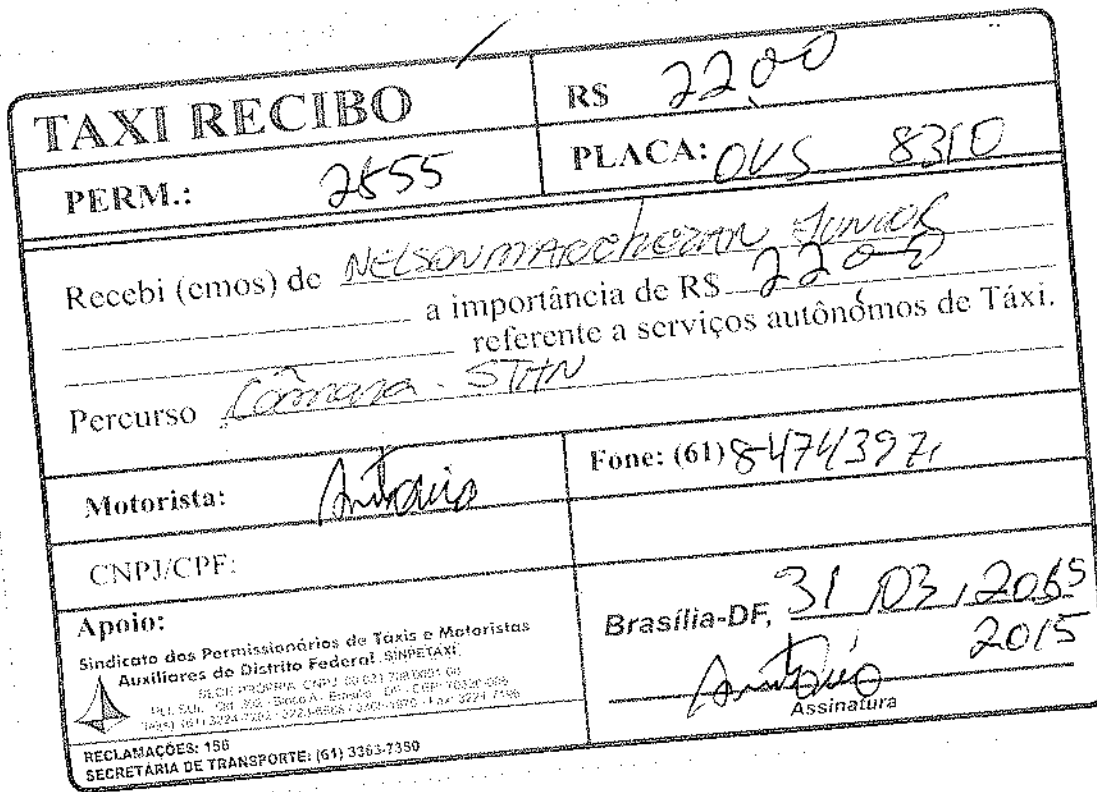 TAXI RECIBO
R$ 22,00
PERM.: 2555
PLACA: OVS 8310
Recebi (emos) de NELSON MARCHEZAN JUNIOR
a importância de R$ 22,00
referente a serviços autônomos de Táxi.
Percurso Câmara - STHN
Motorista: Antonio
Fone: (61) 84743971
CNPJ/CPF:
Apoio:
Sindicato dos Permissionários de Táxis e Motoristas
Auxiliares do Distrito Federal - SINPETAXI
RECLAMAÇÕES: 156
SECRETARIA DE TRANSPORTE: (61) 3363-7350
Brasília-DF, 31 / 03 / 2015
2015
Antonio
Assinatura